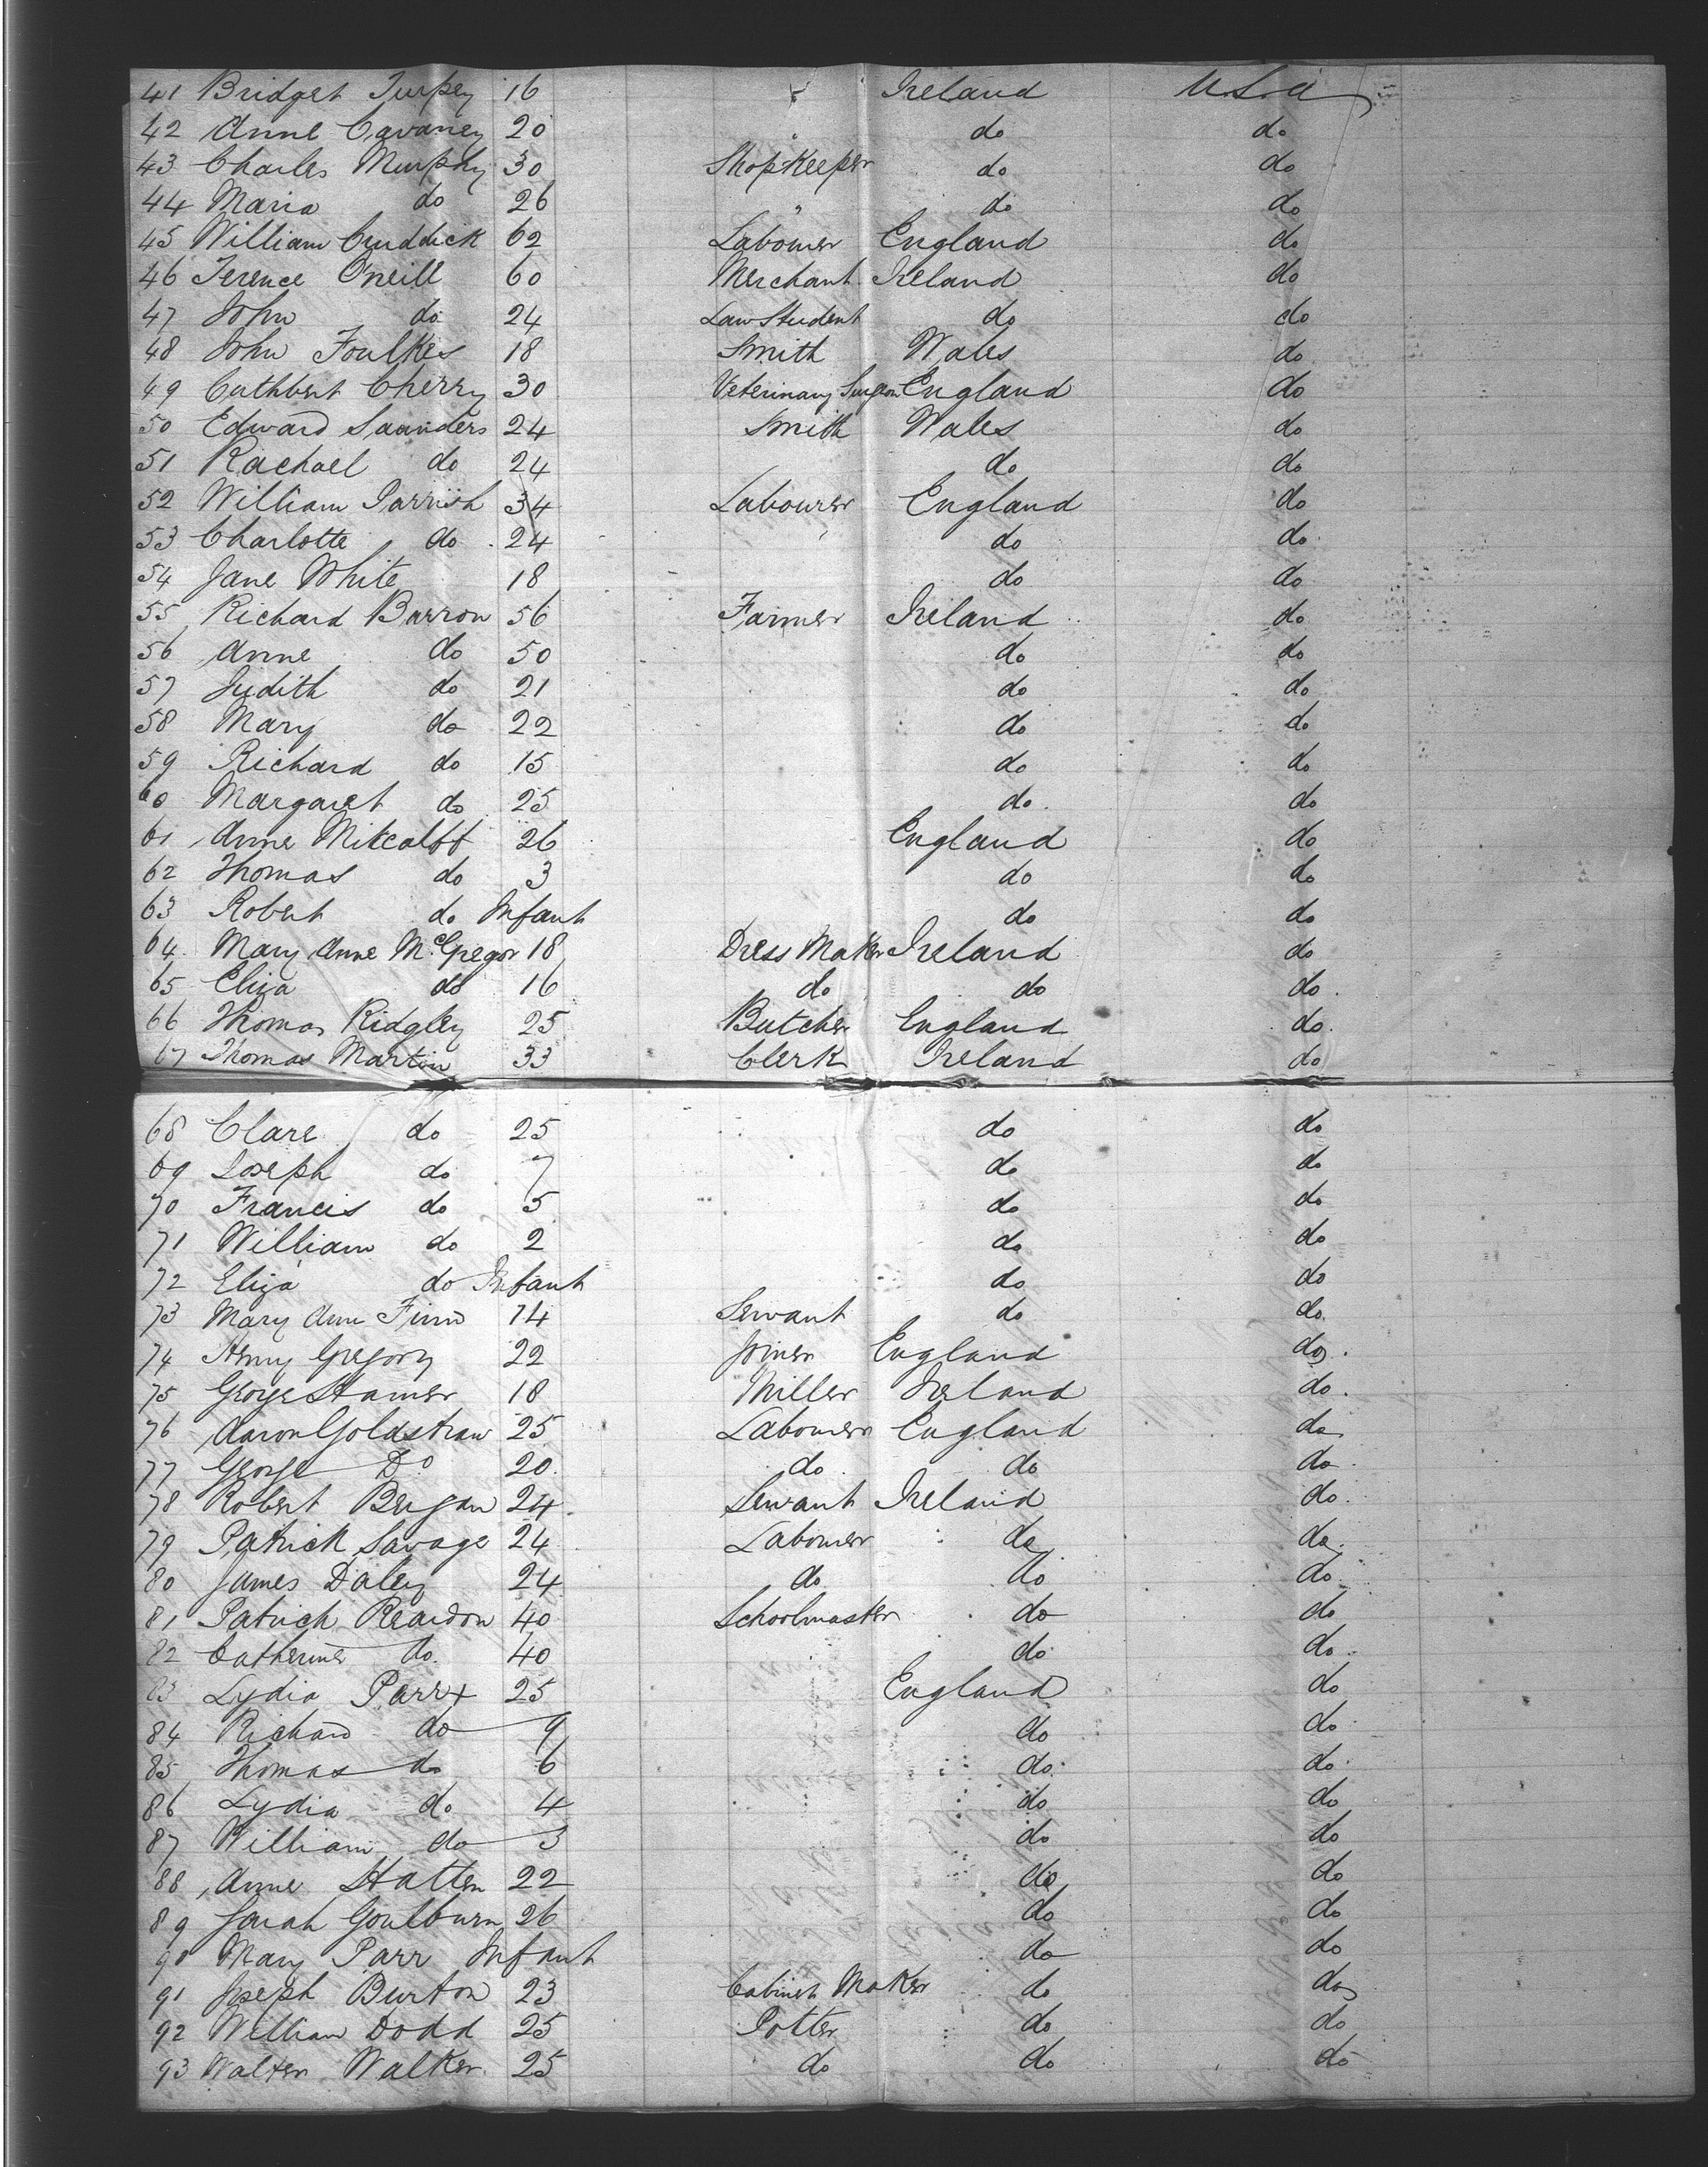 41 Bridget Turpey 16 " Ireland U.S.a
42 Anne Cavaney 20 " do do
43 Charles Murphy 30 ShopKeeper do do
44 Maria do 26 " do do
45 William Cruddick 62 Labourer England do
46 Terence O'neill 60 Merchant Ireland do
47 John do 24 Law Student do do
48 John Foulkes 18 Smith Wales do
49 Cuthbert Cherry 30 Veterinary Surgeon England do
50 Edward Saanders 24 Smith Wales do
51 Rachael do 24 do do
52 William Parrish 34 Labourer England do
53 Charlotte do 24 do do
54 Jane White 18 do do
55 Richard Barron 56 Farmer Ireland do
56 Anne do 50 do do
57 Judith do 21 do do
58 Mary do 22 do do
59 Richard do 15 do do
60 Margaret do 25 do do
61 Anne Mitcalff 26 England do
62 Thomas do 3 do do
63 Robert do Infant do do
64 Mary Anne McGregor 18 Dress Maker Ireland do
65 Eliza do 16 do do do
66 Thomas Ridgley 25 Butcher England do
67 Thomas Martin 33 Clerk Ireland do
68 Clare do 25 do do
69 Joseph do 7 do do
70 Francis do 5 do do
71 William do 2 do do
72 Eliza do Infant do do
73 Mary Ann Finn 14 Servant do do
74 Henry Gregory 22 Joiner England do
75 George Hamer 18 Miller Ireland do
76 Aaron Goldstraw 25 Labourer England do
77 George Do 20 do do do
78 Robert Bergan 24 Servant Ireland do
79 Patrick Savage 24 Labourer do do
80 James Daley 24 do do do
81 Patrick Reardon 40 Schoolmaster do do
82 Catherine do 40 do do
83 Lydia Parr 25 England do
84 Richard do 9 do do
85 Thomas do 6 do do
86 Lydia do 4 do do
87 William do 3 do do
88 Anne Hatten 22 do do
89 Sarah Goulburn 26 do do
90 Mary Parr Infant do do
91 Joseph Burton 23 Cabinet Maker do do
92 William Dodd 25 Potter do do
93 Walter Walker 25 do do do